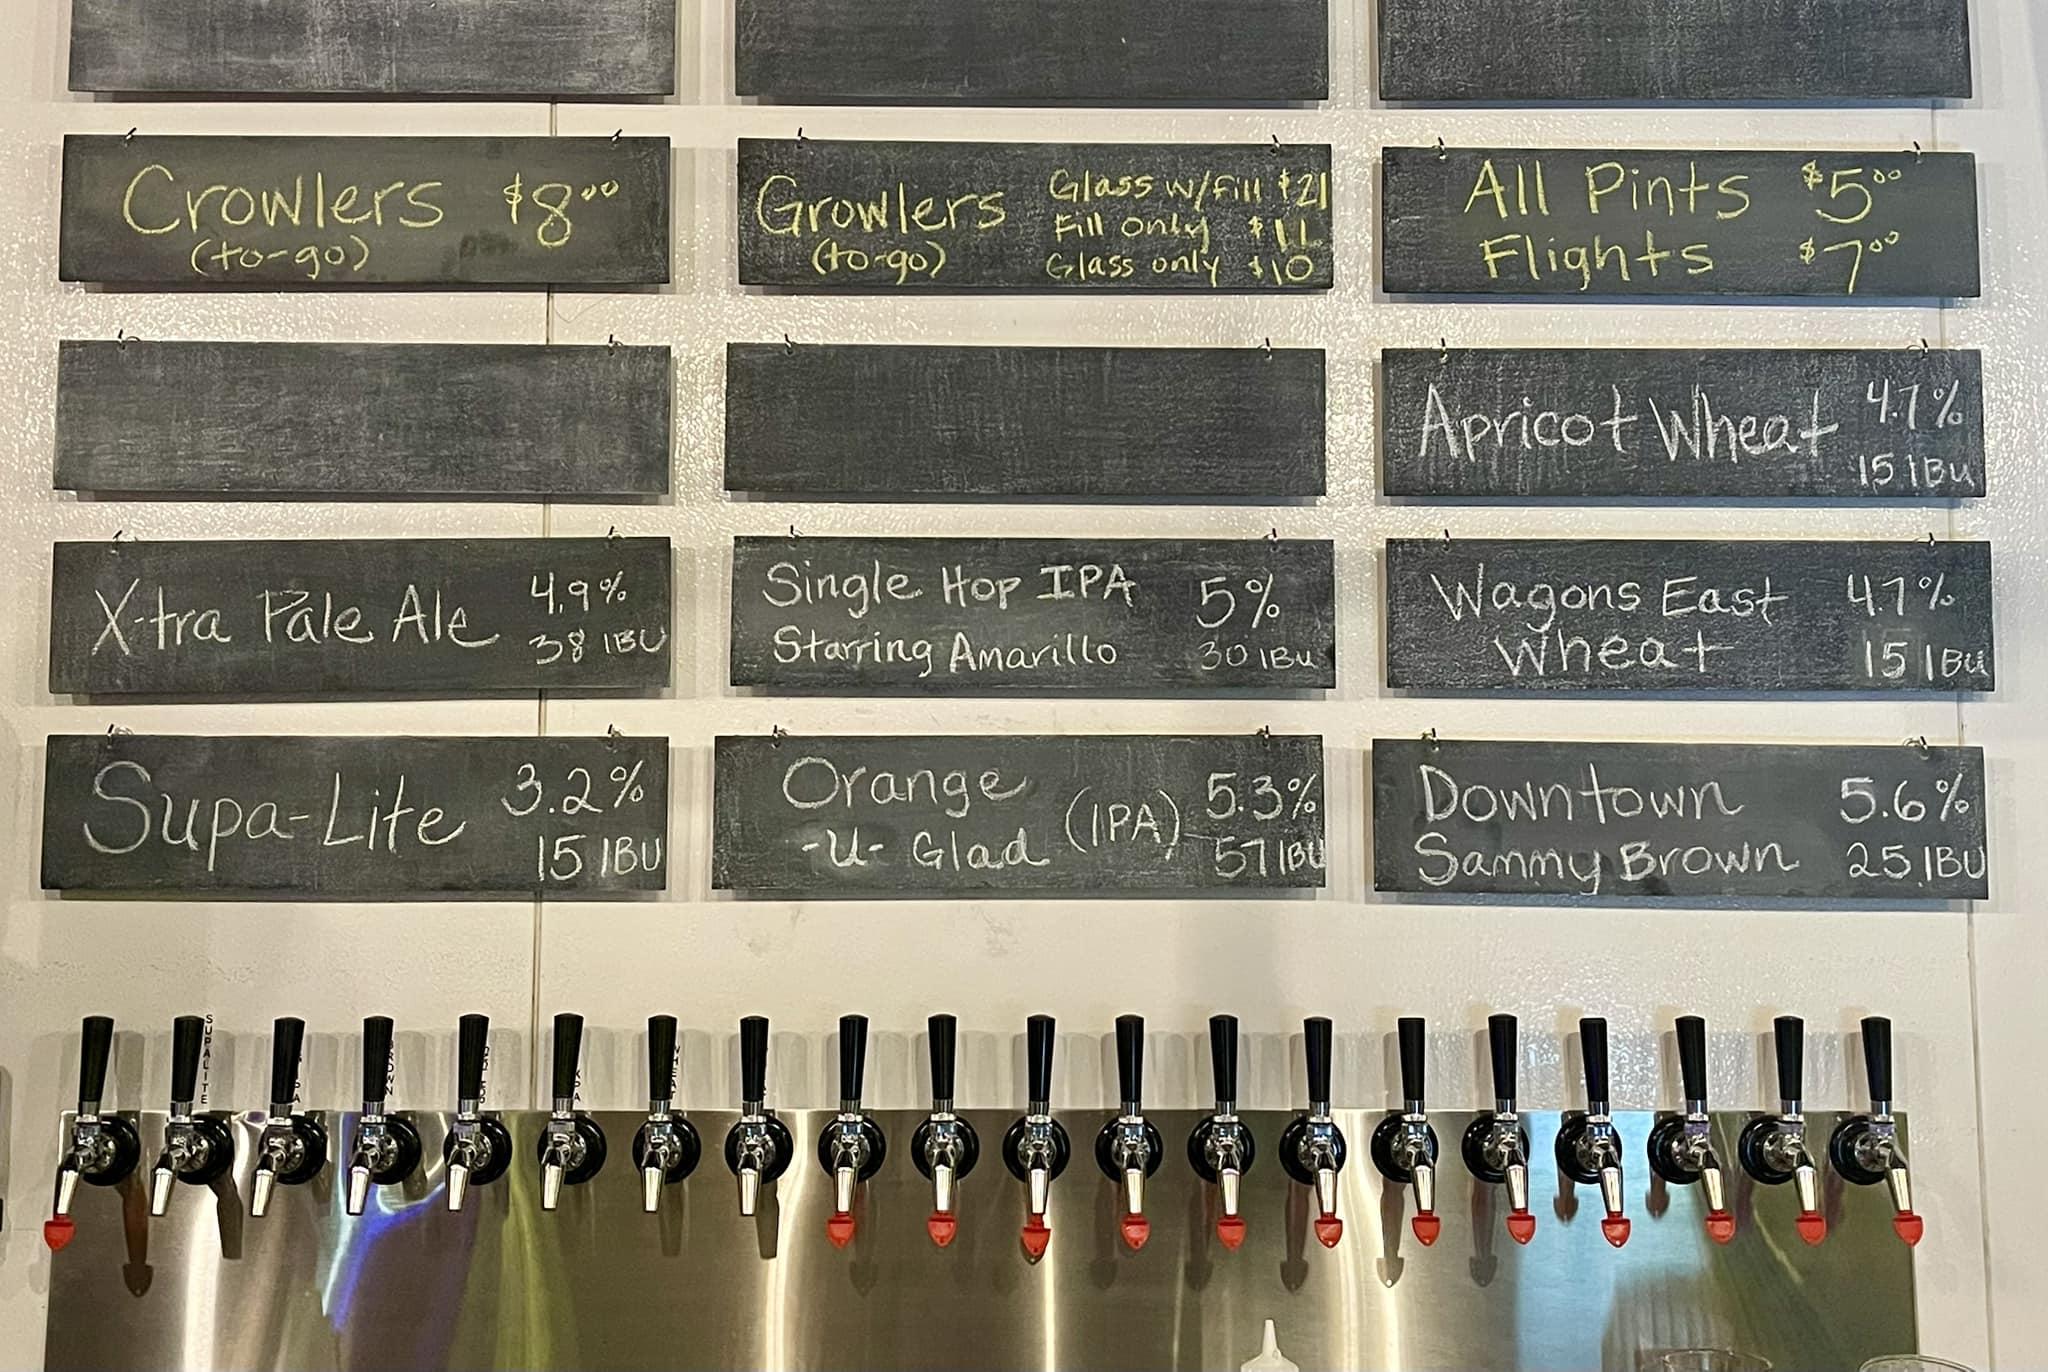 Crowlers $8.00
(to-go)
Growlers
(to-go)
Glass w/fill $21
Fill only $11
Glass only $10
All Pints $5.00
Flights $7.00
Apricot Wheat 4.7%
15 IBU
X-tra Pale Ale 4.9%
38 IBU
Single Hop IPA 5%
Starring Amarillo 30 IBU
Wagons East 4.7%
Wheat 15 IBU
Supa-Lite 3.2%
15 IBU
Orange (IPA) 5.3%
-U- Glad 57 IBU
Downtown 5.6%
Sammy Brown 25 IBU
SUPALITE
BROWN
XPA
WHEAT